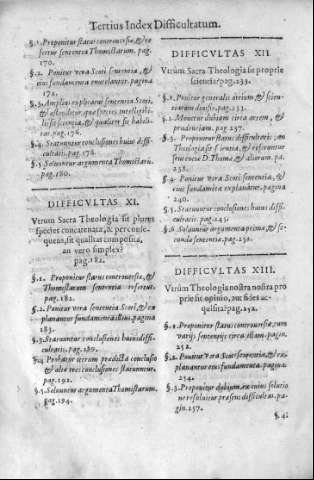 Tertius Index Difficultatum.
§.1. Proponitur status controuersiæ, & re
fertur sententia Thomistarum, pag.
170.
§.2. Ponitur vera Scoti sententia, &
eius fundamenta enucleantur. pagina
172.
§.3. Amplius explicatur sententia Scoti,
& ostenditur, quæ species intelligibi
lis sit scientia, & qualiter se habeat
tur. pag. 176.
§.4. Statuuntur conclusiones huius diffi
cultatis. pag. 178.
§.5. Soluuntur argumenta Thomistarum.
pag. 180.
DIFFICVLTAS XI.
Vtrum Sacra Theologia sit plures
species concatenata, & per conse-
quens, sit qualitas composita,
an vero simplex?
pag. 182.
§.1. Proponitur status controuersiæ, &
Thomistarum sententia refertur.
pag. 182.
§.2. Ponitur vera sententia Scoti, & ex
planantur fundamenta illius. pagina
183.
§.3. Statuuntur conclusiones huius diffi-
cultatis. pag. 189.
§.4. Probatur iterum prædicta conclusio
& aliæ tres conclusiones statuuntur.
pag. 192.
§.5. Soluuntur argumenta Thomistarum,
pag. 194.
DIFFICVLTAS XII.
Vtrum Sacra Theologia sit proprie
scientia? pag. 233.
§.1. Ponitur generalis diuisio & scien-
tiarum pag. 233.
§.2. Mouetur dubium circa artem, &
prudentiam. pag. 237.
§.3. Proponitur status difficultatis: an
Theologia sit scientia, & referuntur
sententiæ D. Thomæ, & aliorum. pa.
238.
§.4. Ponitur vera Scoti sententia, &
eius fundamenta explanantur. pagina
240.
§.5. Statuuntur conclusiones huius diffi
cultatis. pag. 245.
§.6. Soluuntur argumenta primæ, & se-
cundæ sententiæ. pag. 250.
DIFFICVLTAS XIII.
Vtrum Theologia nostra nostra pro
prie sit opinio, aut fides ac-
quisita? pag. 252.
§.1. Proponitur status controuersiæ, cum
varijs sententijs circa illam. pagin.
252.
§.2. Ponitur vera Scoti sententia, & ex
planantur eius fundamenta. pagina
254.
§.3. Proponitur dubium, ex cuius solutio
ne resoluitur præsens difficultas. pa-
gin. 257.
§.4.